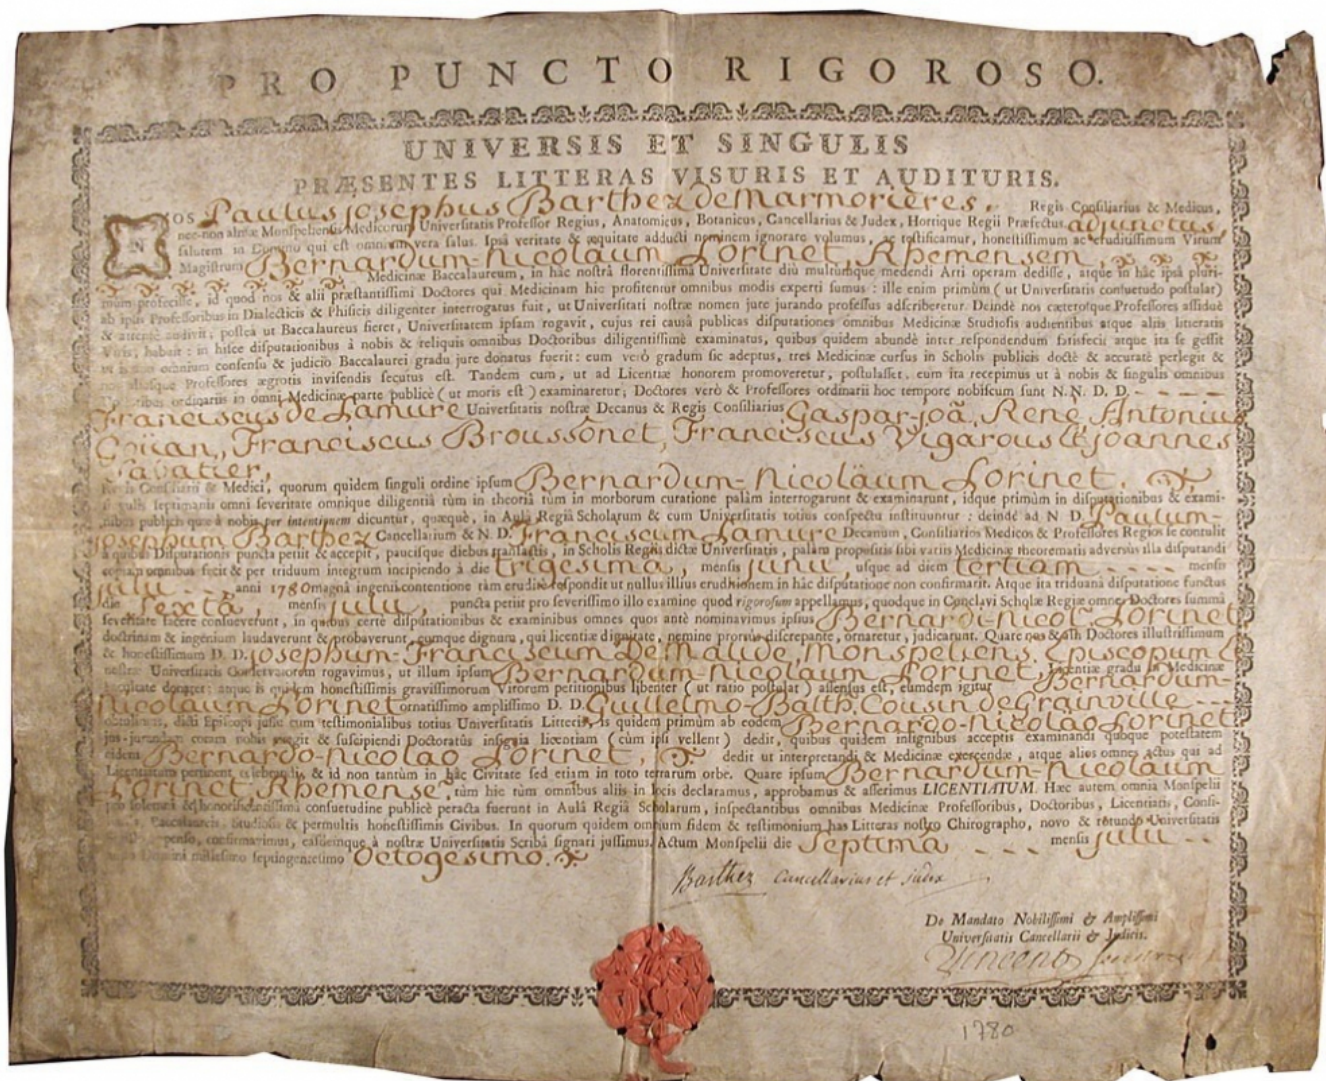 PRO PUNCTO RIGOROSO.
UNIVERSIS ET SINGULIS
PRÆSENTES LITTERAS VISURIS ET AUDITURIS.
NOS Paulus josephus Barthez de Marmorières, Regis Consiliarius & Medicus,
nec-non almæ Monspeliensis Medicorum Universitatis Professor Regius, Anatomicus, Botanicus, Cancellarius & Judex, Hortique Regii Præfectus adjunctus,
salutem in Domino qui est omnium vera salus. Ipsâ veritate & æquitate adducti neminem ignorare volumus, ac testificamur, honestissimum ac eruditissimum Virum
Magistrum Bernardum-nicoläum Lorinet, Rhemensem,
Medicinæ Baccalaureum, in hâc nostrâ florentissimâ Universitate diù multùmque medendi Arti operam dedisse, atque in hâc ipsâ pluri-
mùm profecisse, id quod nos & alii præstantissimi Doctores qui Medicinam hîc profitentur omnibus modis experti sumus : ille enim primùm ( ut Universitatis consuetudo postulat )
ab ipsis Professoribus in Dialecticis & Phisicis diligenter interrogatus fuit, ut Universitati nostræ nomen jure jurando professus adscriberetur. Deindè nos cæterosque Professores assiduè
& attentè audivit; posteà ut Baccalaureus fieret, Universitatem ipsam rogavit, cujus rei causâ publicas disputationes omnibus Medicinæ Studiosis audientibus atque aliis litteratis
Viris, habuit : in hisce disputationibus à nobis & reliquis omnibus Doctoribus diligentissimè examinatus, quibus quidem abundè inter respondendum satisfecit atque ita se gessit
ut is omnium consensu & judicio Baccalaurei gradu jure donatus fuerit : cum verò gradum sic adeptus, tres Medicinæ cursus in Scholis publicis doctè & accuratè perlegit &
Professores ægrotis invisendis secutus est. Tandem cum, ut ad Licentiæ honorem promoveretur, postulasset, eum ita recepimus ut à nobis & singulis omnibus
ordinariis in omni Medicinæ parte publicè ( ut moris est ) examinaretur; Doctores verò & Professores ordinarii hoc tempore nobiscum sunt N.N. D. D.
Franciscus de Lamure Universitatis nostræ Decanus & Regis Consiliarius Gaspar-joã, René, Antonius
Goüan, Franciscus Broussonet, Franciscus Vigarous & joannes
Sabatier,
Regis Consiliarii & Medici, quorum quidem singuli ordine ipsum Bernardum-Nicoläum Lorinet,
septimanis omni severitate omnique diligentiâ tùm in theoriâ tùm in morborum curatione palàm interrogarunt & examinarunt, idque primùm in disputationibus & exami-
nibus publicis quæ à nobis per intentionem dicuntur, quæque, in Aulâ Regiâ Scholarum & cum Universitatis totius conspectu instituuntur : deindè ad N D. Paulum-
josephum Barthez Cancellarium & N. D. Franciscum Lamure Decanum, Consiliarios Medicos & Professores Regios se contulit
à quibus Disputationis puncta petiit & accepit, paucisque diebus transactis, in Scholis Regiis dictæ Universitatis, palàm propositis sibi variis Medicinæ theorematis adversùs illa disputandi
copiam omnibus fecit & per triduum integrum incipiendo à die trigesima, mensis junii, usque ad diem tertiam mensis
julii anni 1780 magnâ ingenii contentione tam eruditè respondit ut nullus illius eruditionem in hâc disputatione non confirmarit. Atque ita triduanâ disputatione functus
die sextâ, mensis julii, puncta petiit pro severissimo illo examine quod rigorosum appellamus, quodque in Conclavi Scholæ Regiæ omnes Doctores summâ
severitate facere consueverunt, in quibus certè disputationibus & examinibus omnes quos antè nominavimus ipsius Bernardi-nicol. Lorinet
doctrinam & ingenium laudaverunt & probaverunt, eumque dignum, qui licentiæ dignitate, nemine prorsùs discrepante, ornaretur, judicarunt. Quare nos & alii Doctores illustrissimum
& honestissimum D. D. josephum-Franciscum De Malide, Monspeliens. Episcopum &
nostræ Universitatis Conservatorem rogavimus, ut illum ipsum Bernardum-nicolaum Lorinet, Licentiæ gradu in Medicinæ
facultate donaret : atque is quidem honestissimis gravissimorum Virorum petitionibus libenter ( ut ratio postulat ) assensus est, eumdem igitur Bernardum-
nicolaum Lorinet ornatissimo amplissimo D. D. Guillelmo-Balth. Cousin de Grainville
dicti Episcopi jussu cum testimonialibus totius Universitatis Litteris, is quidem primùm ab eodem Bernardo-nicolao Lorinet
jus-jurandum coram nobis exegit & suscipiendi Doctoratûs insignia licentiam ( cùm ipsi vellent ) dedit, quibus quidem insignibus acceptis examinandi quoque potestatem
eidem Bernardo-nicolao Lorinet, dedit ut interpretandi & Medicinæ exercendæ, atque alios omnes actus qui ad
Licentiatum pertinent celebrandi, & id non tantùm in hâc Civitate sed etiam in toto terrarum orbe. Quare ipsum Bernardum-nicolaum
Lorinet, Rhemense, tùm hîc tùm omnibus aliis in locis declaramus, approbamus & asserimus LICENTIATUM. Hæc autem omnia Monspelii
solemni & honorificentissimâ consuetudine publicè peracta fuerunt in Aulâ Regiâ Scholarum, inspectantibus omnibus Medicinæ Professoribus, Doctoribus, Licentiatis, Consi-
Baccalaureis, Studiosis & permultis honestissimis Civibus. In quorum quidem omnium fidem & testimonium has Litteras nostro Chirographo, novo & rotundo Universitatis
confirmavimus, easdemque à nostræ Universitatis Scribâ signari jussimus. Actum Monspelii die septima mensis julii
Domini millesimo septingentesimo octogesimo.
Barthez Cancellarius et judex
De Mandato Nobilissimi & Amplissimi
Universitatis Cancellarii & Judicis.
Vincent
1780